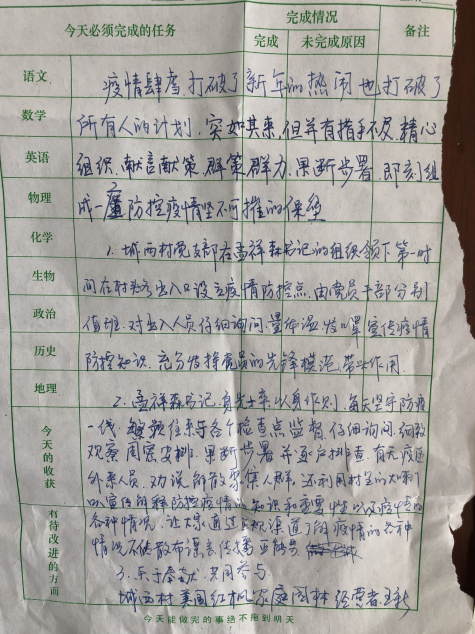 今天必须完成的任务 完成情况 备注
完成 未完成原因
语文 疫情肆虐,打破了新年的热闹也打破了
数学 所有人的计划,突如其来,但并有措手不及,精心
英语 组织,献言献策,群策群力,果断步署,即刻组
物理 成一座防控疫情坚不可摧的保
化学 1、城西村党支部在孟祥森书记的组织领下第一时
生物 间在村出入口设立疫情防控点,由党员干部分别
政治 值班,对出入人员仔细询问,量体温,宣传疫情
历史 防控知识,充分发挥党员的先锋模范带头作用
地理 2、孟祥森书记,身先士卒,以身作则,每天坚守防疫
今天的收获 一线,频繁往来于各个检查点监督,仔细询问,细致
观察周密安排,果断步署并逐户排查,有无疫区
外来人员,劝说解散聚集人群,还利用村里的大喇叭
以宣传解释防控疫情的知识和重要性以及疫情的
有待改进的方面 各种情况,让大家通过正规渠道了解疫情的各种
情况不散布谣言传播
3、乐于奉献,共同参与
城西村美国红枫家庭园林 经营者
今天能做完的事绝不拖到明天